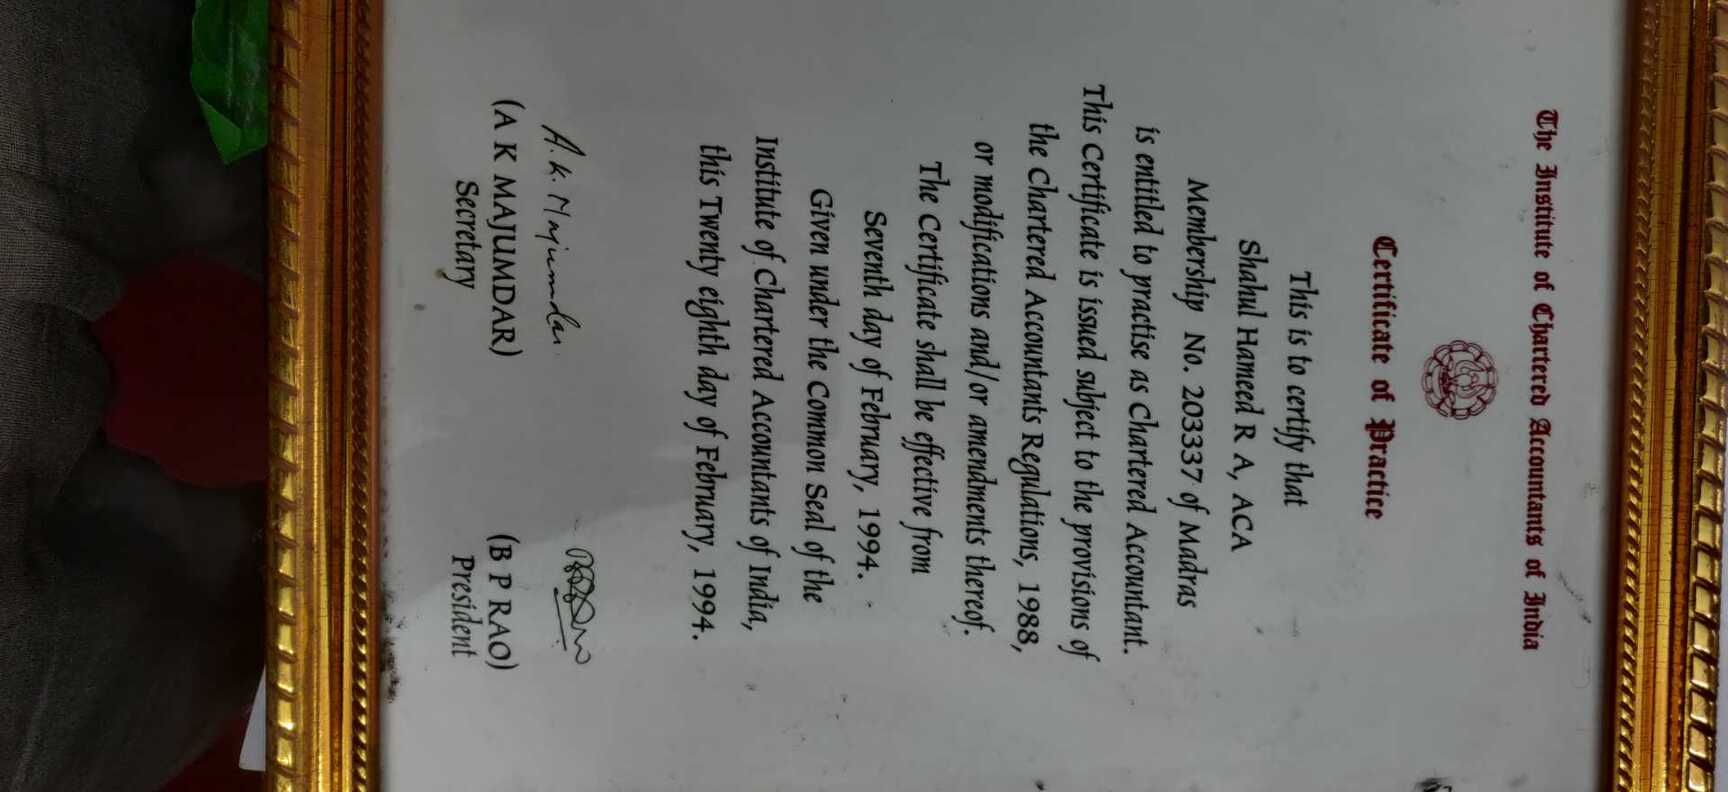 The Institute of Chartered Accountants of India
Certificate of Practice
This is to certify that
Shahul Hameed R A, ACA
Membership No. 203337 of Madras
is entitled to practise as Chartered Accountant.
This Certificate is issued subject to the provisions of
the Chartered Accountants Regulations, 1988,
or modifications and/or amendments thereof.
The Certificate shall be effective from
Seventh day of February, 1994.
Given under the Common Seal of the
Institute of Chartered Accountants of India,
this Twenty eighth day of February, 1994.
A. K. Majumdar.
(A K MAJUMDAR)
Secretary
(B P RAO)
President